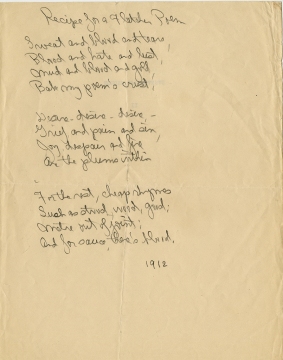 Recipe for a Fletcher Poem
Sweat and blood and tears,
Blood and hate and lust,
Mud and blood and gold
Bake my poem's crust;
Desire - desire - desire, -
Grief and pain and sin,
Joy, despair and
Are the plums within
For the rest, cheap rhymes
Such as blood, wood, good;
Metre out of joint;
And for sauce, there's blood.
1912